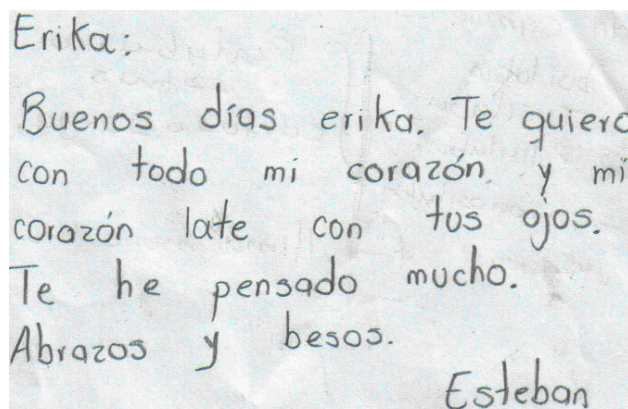 Erika:
Buenos días erika. Te quiero
con todo mi corazón y mi
corazón late con tus ojos.
Te he pensado mucho.
Abrazos y besos.
Esteban